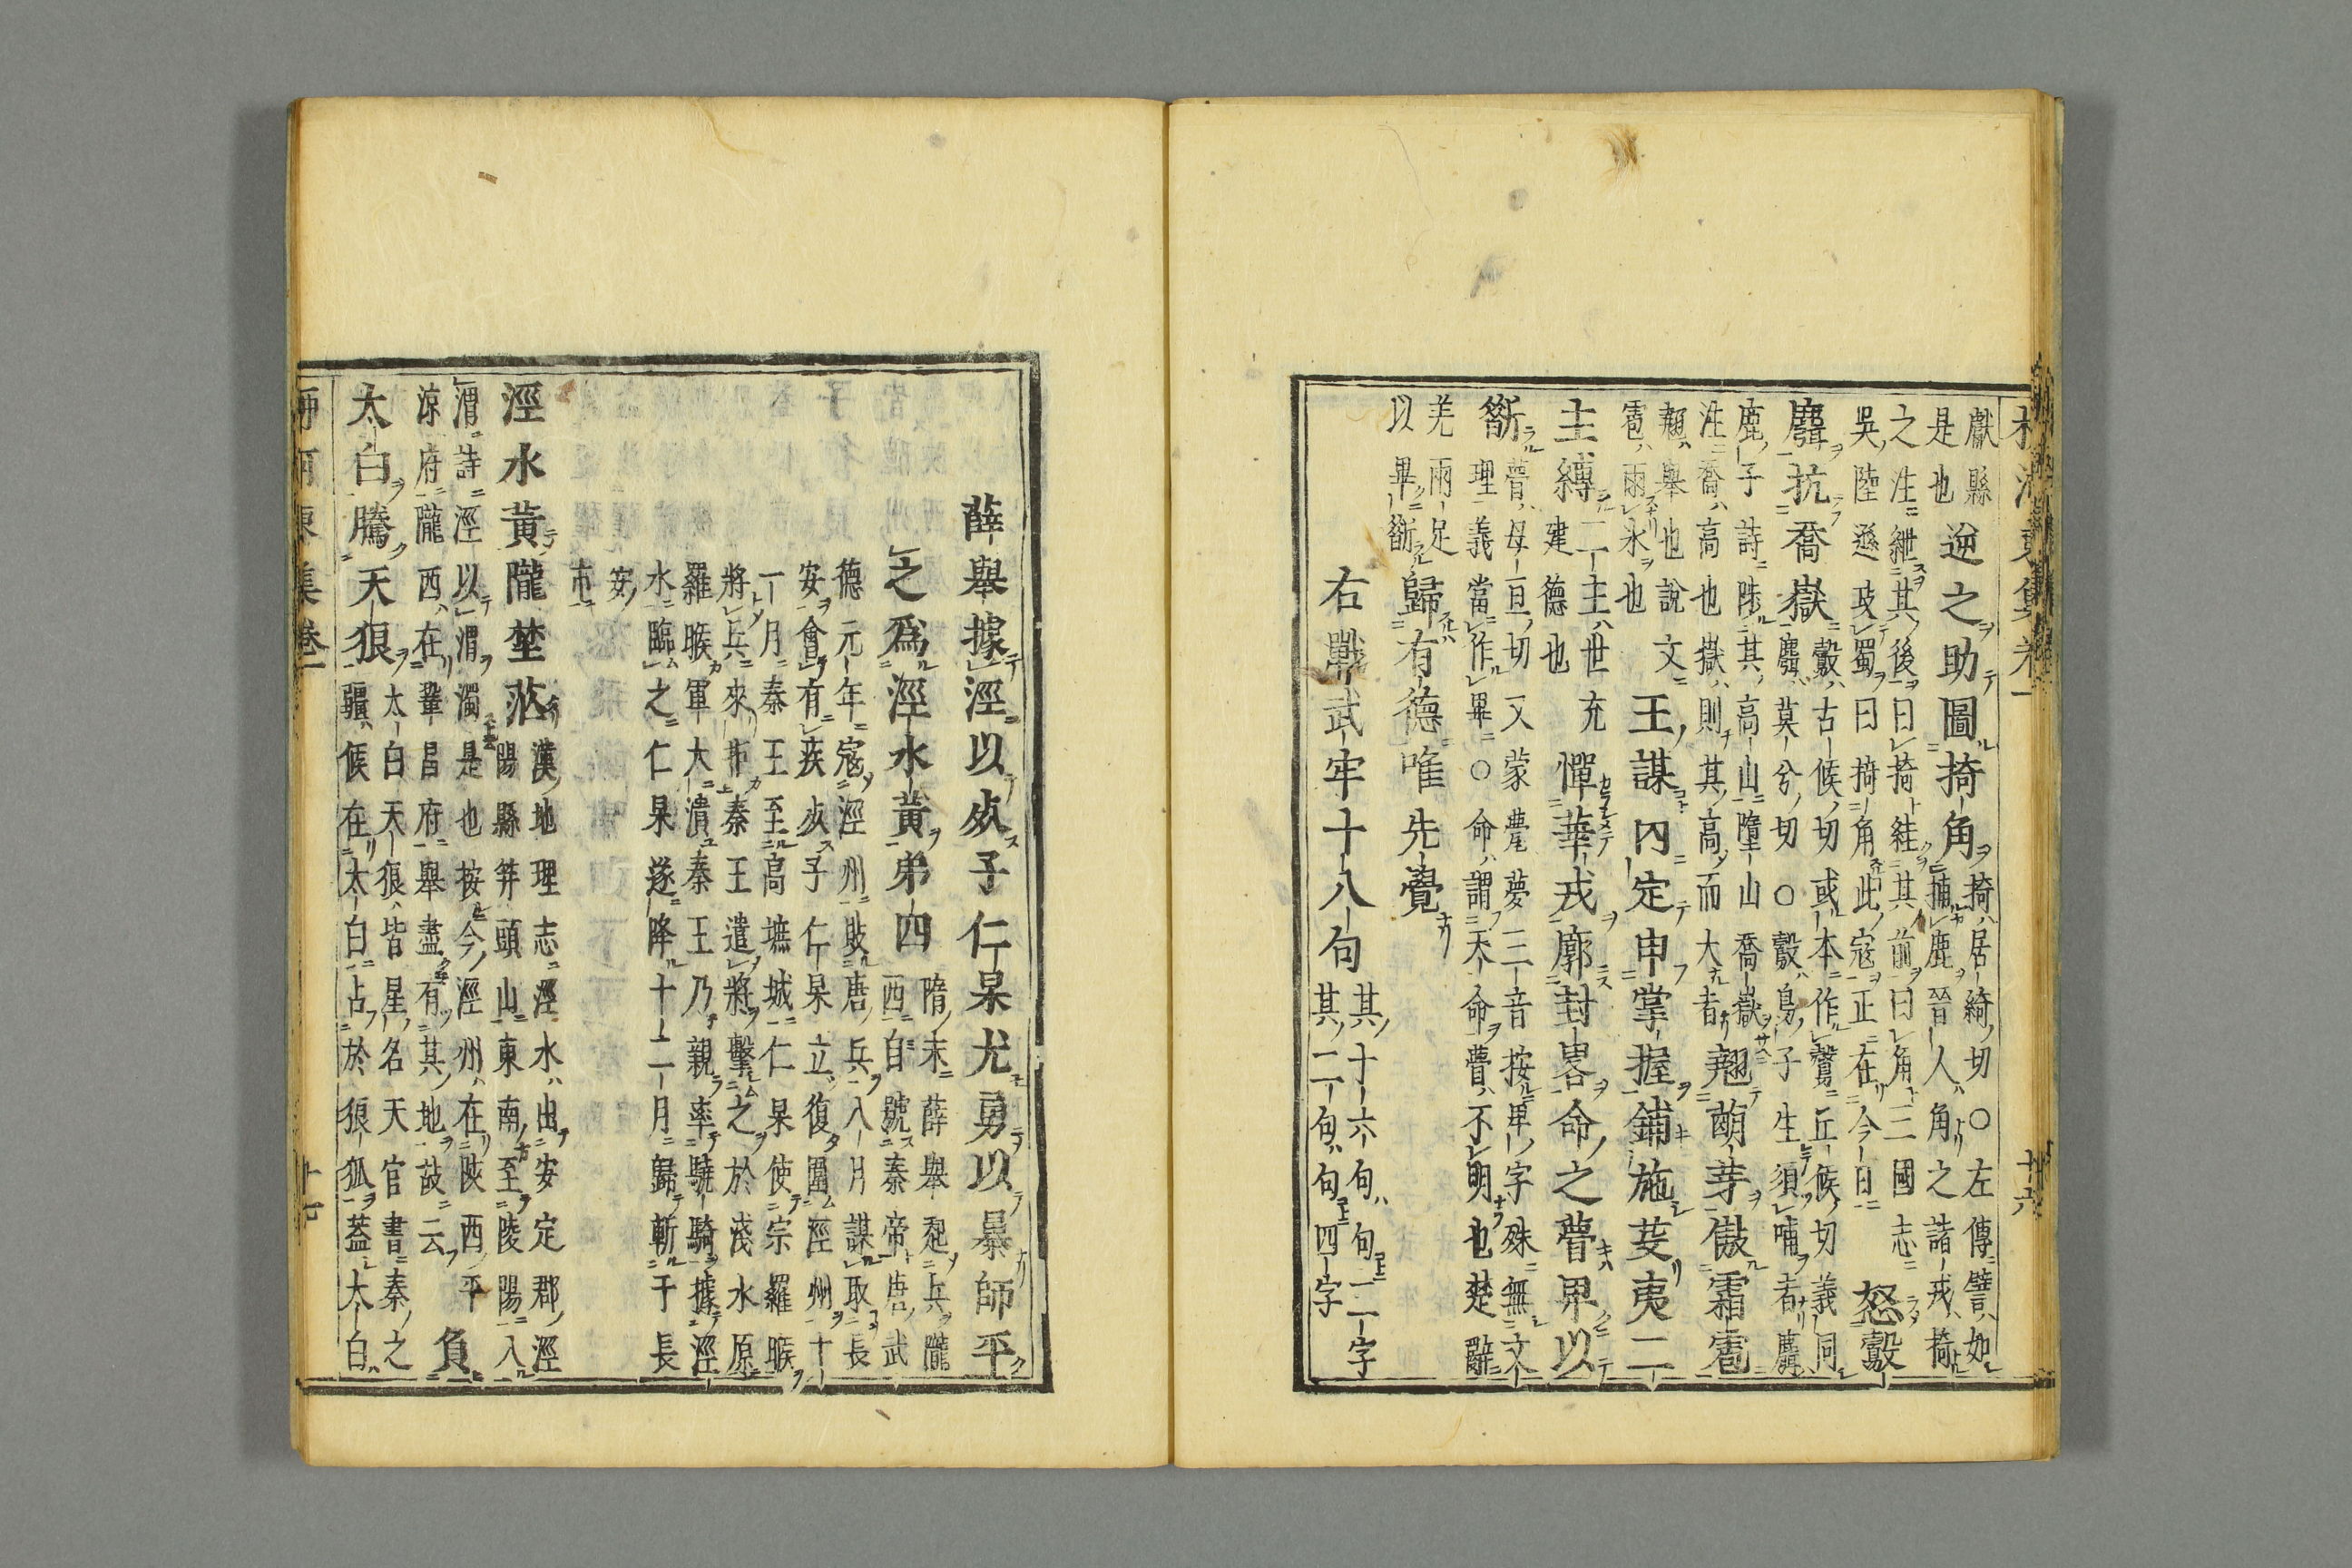 獻縣
是也
逆之助圖掎角
掎居綺切○左傳譬如
捕鹿晉人角之諸戎掎
之注紲其後曰掎絓其前曰角三國志
吳陸遜攻蜀曰掎角此寇正在今日
怒鷇
麛抗喬嶽
鷇古候切或本作鷖丘候切義同
麛莫兮切○鷇鳥子生須哺者麛
鹿子詩陟其高山墮山喬嶽
注喬高也嶽則其高而大者
翹萌芽傲霜雹
翹舉也說文
雹雨冰也
王謀內定申掌握鋪施芟夷二
主縛
二主世充
建德也
憚華戎廓封畧命之瞢畀以
斮
瞢母亘切又蒙夢三音按畀字殊無文
理義當作畢○命謂天命瞢不明也楚辭
羌兩足
以畢斮
歸有德唯先覺
右戰武牢十八句
其十六句句二字
其二句句四字
薛舉據涇以死子仁杲尤勇以暴師平
之為涇水黃弟四
隋末薛舉起兵隴
西自號秦帝唐武
德元年寇涇州敗唐兵八月謀取長
安會有疾死子仁杲立復圍涇州十
一月秦王至高墌城仁杲使宗羅睺
將兵來拒秦王遣將擊之於淺水原
羅睺軍大潰秦王乃親率驍騎據涇
水臨之仁杲遂降十二月歸斬于長
安
市
涇水黃隴埜茫
漢地理志涇水出安定郡涇
陽縣笄頭山東南至陵陽入
渭詩涇以渭濁是也按今涇州在陝西平
涼府隴西在鞏昌府舉盡有其地故云
負
太白騰天狼
太白天狼皆星名天官書秦之
疆候在太白占於狼弧蓋太白